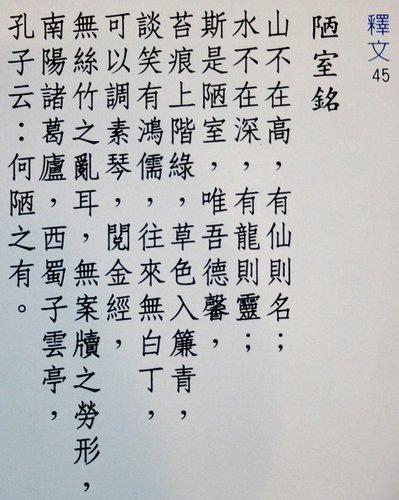 釋文 45
陋室銘
山不在高，有仙則名；
水不在深，有龍則靈；
斯是陋室，唯吾德馨，
苔痕上階綠，草色入簾青，
談笑有鴻儒，往來無白丁，
可以調素琴，閱金經，
無絲竹之亂耳，無案牘之勞形，
南陽諸葛廬，西蜀子雲亭，
孔子云：何陋之有。